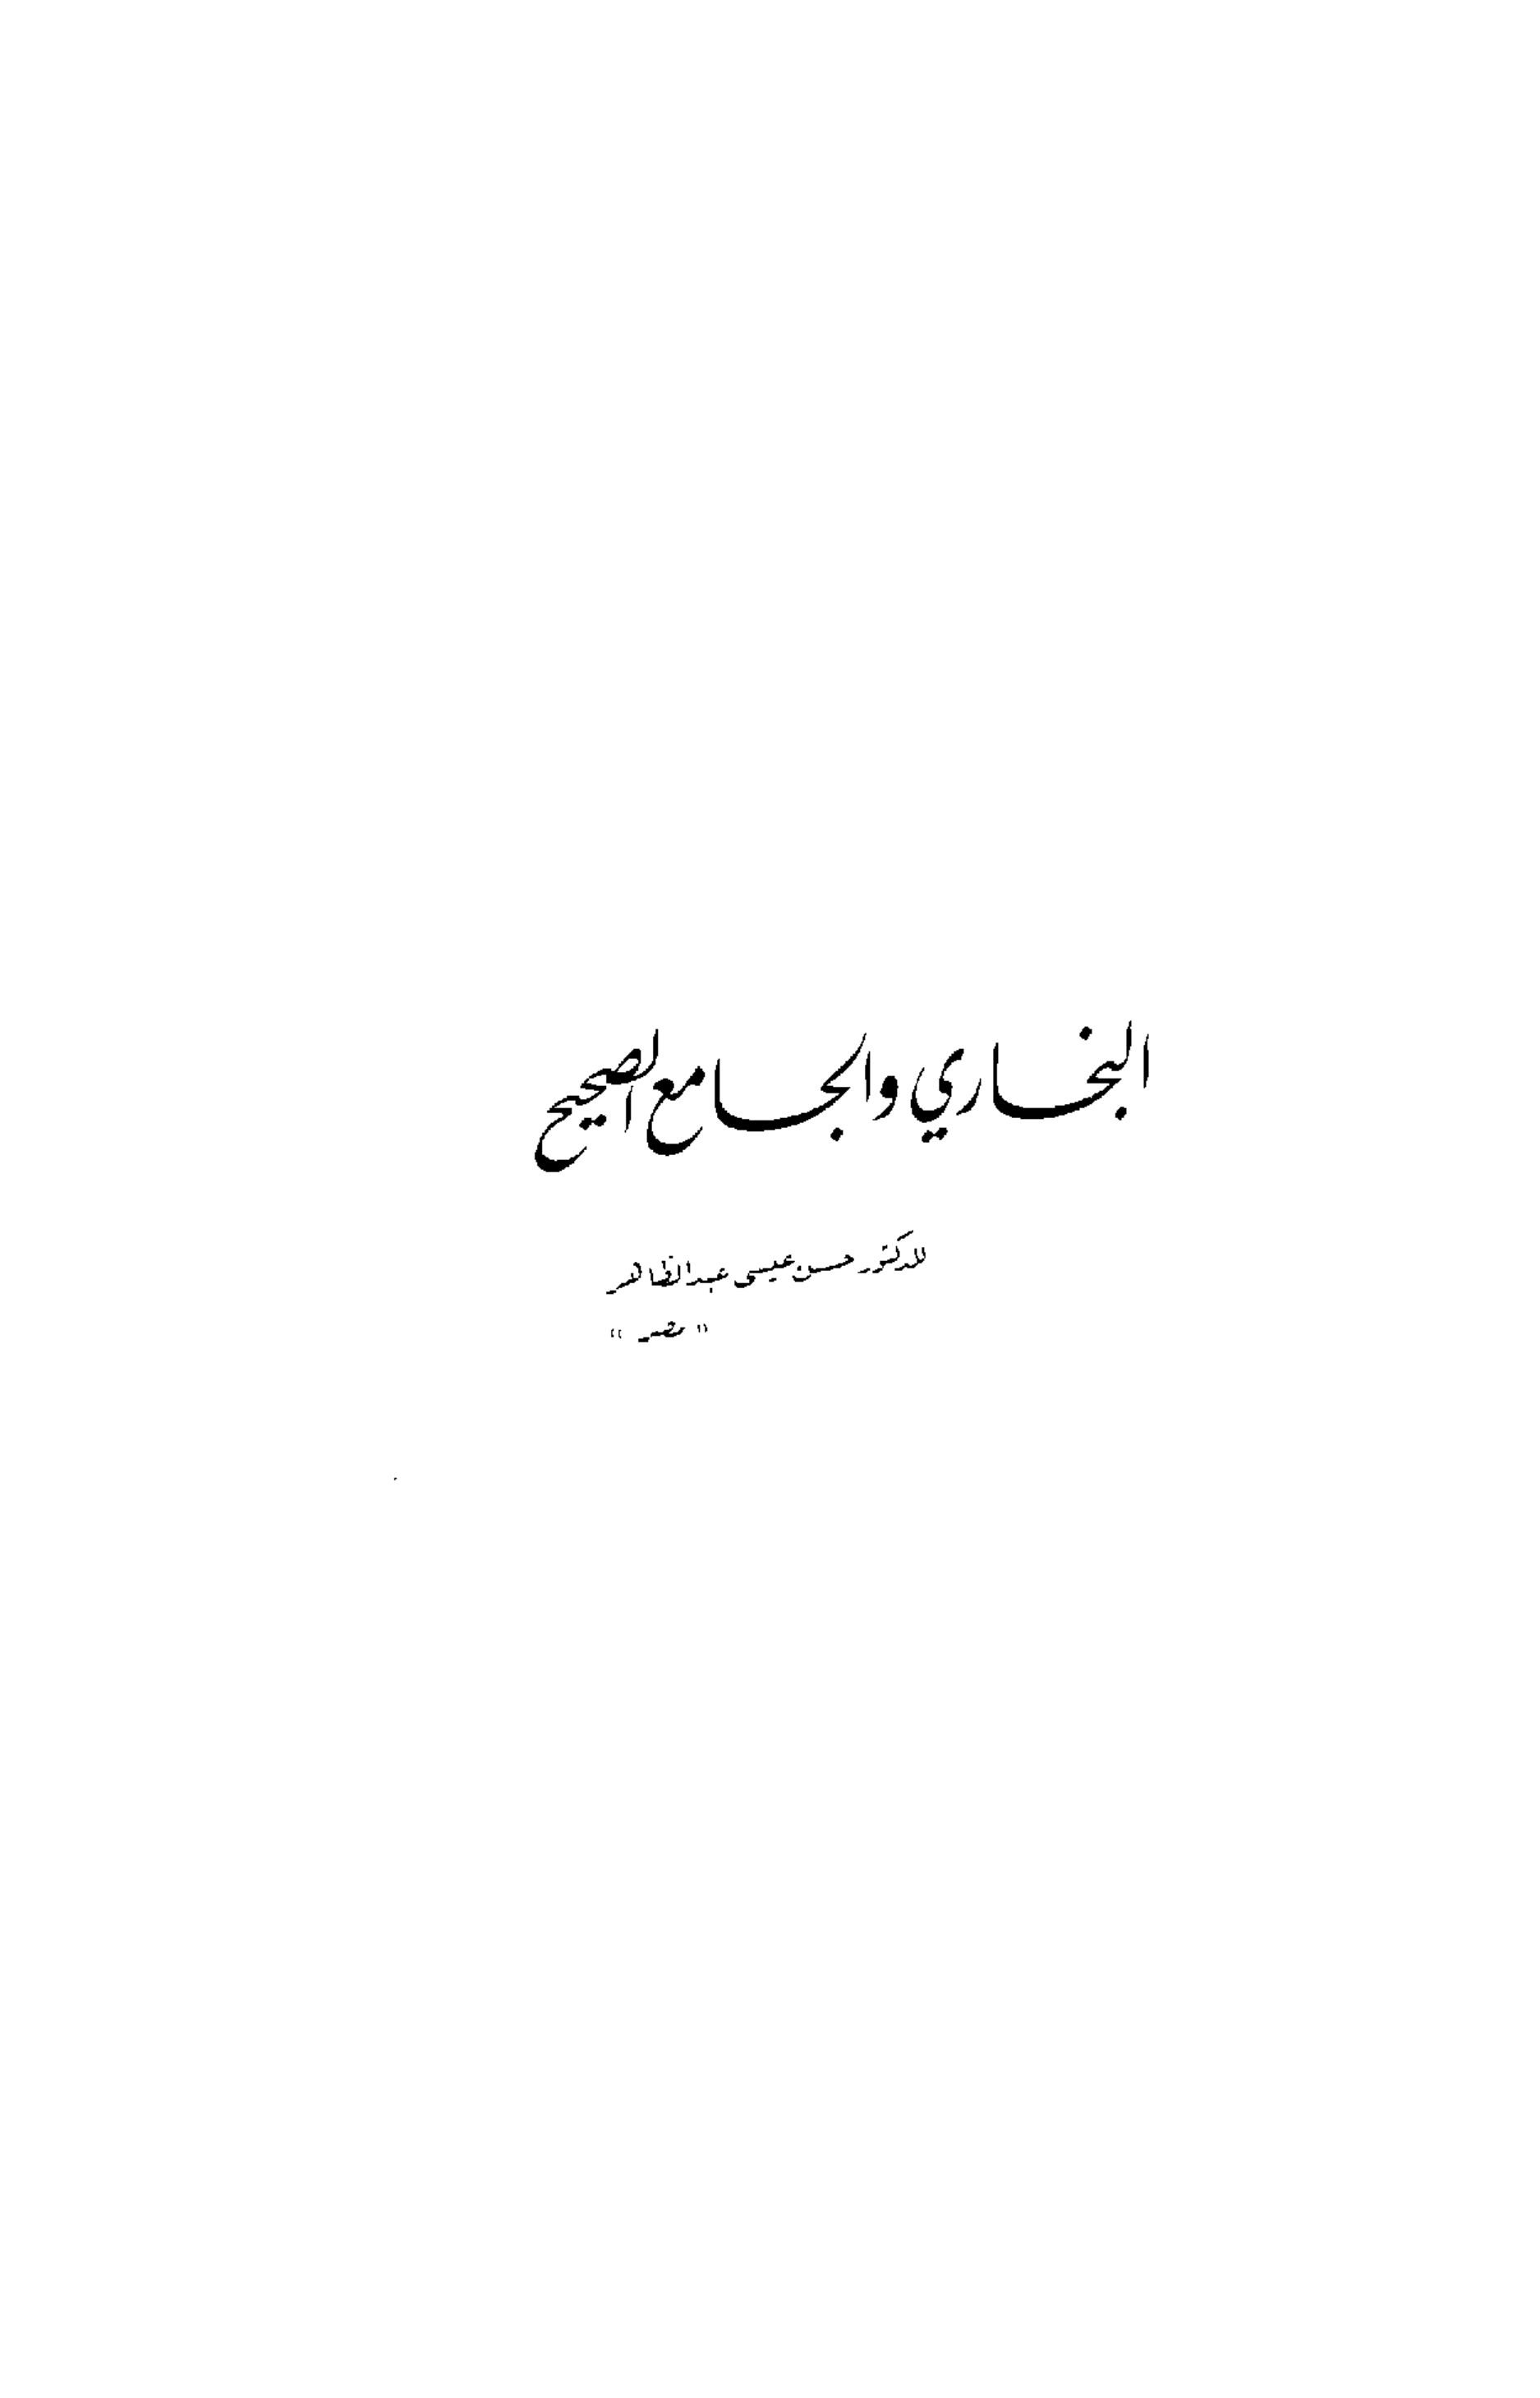 البخاري والجامع الصحيح
للدكتور حسن عيسى عبد الظاهر
" مصر "